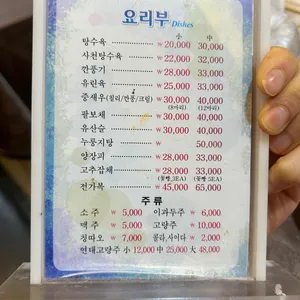 요리부 Dishes
小 中
탕수육 ₩ 20,000 30,000
사천탕수육 ₩ 22,000 32,000
깐풍기 ₩ 28,000 33,000
유린육 ₩ 25,000 30,000
중새우(칠리/깐풍/크림) ₩ 30,000 40,000
(8마리) (12마리)
팔보채 ₩ 30,000 40,000
유산슬 ₩ 30,000 40,000
누룽지탕 ₩ 50,000
양장피 ₩ 28,000 33,000
고추잡채 ₩ 28,000 33,000
(꽃빵,3EA) (꽃빵,5EA)
전가복 ₩ 45,000 65,000
주 류
소 주 ₩ 5,000 이과두주 ₩ 6,000
맥 주 ₩ 5,000 고량주 ₩ 10,000
칭따오 ₩ 7,000 콜라,사이다 ₩ 2,000
연태고량주 小 12,000 中 25,000 大 48,000